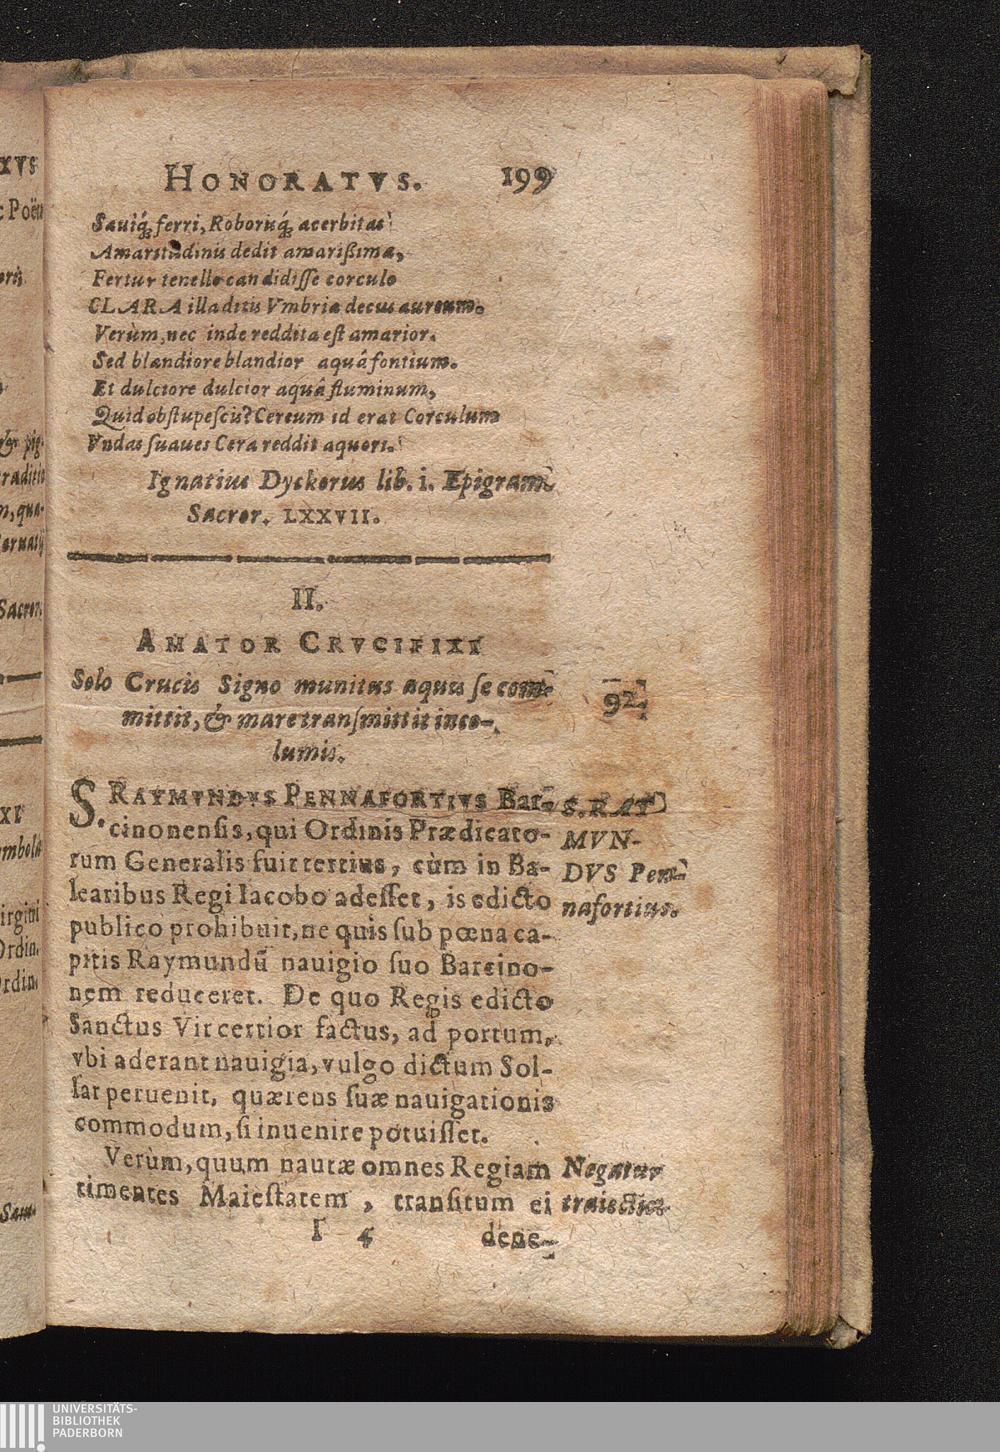 HONORATVS. 199
Sauiq́; ferri, Roboriq́; acerbitas
Amaritudinis dedit amarißima,
Fertur tenello candidiſſe corculo
CLARA illa ditis Vmbria decus aureum.
Verùm, nec inde reddita eſt amarior.
Sed blandiore blandior aquâ fontium.
Et dulciore dulcior aquâ fluminum,
Quid obſtupeſcis? Cereum id erat Corculum
Vndas ſuaues Cera reddit aquori.
Ignatius Dyckerus lib. i. Epigram̄
Sacror. LXXVII.
II.
AMATOR CRVCIFIXI
Solo Crucis Signo munitus aquis ſe com-
mittit, & mare tranſmittit inco-
lumis.
92.
S. RAYMVNDVS PENNAFORTIVS Bar-
cinonenſis, qui Ordinis Prædicato-
rum Generalis fuit tertius, cùm in Ba-
learibus Regi Iacobo adeſſet, is edicto
publico prohibuit, ne quis ſub pœna ca-
pitis Raymundū nauigio ſuo Barcino-
nem reduceret. De quo Regis edicto
Sanctus Vir certior factus, ad portum,
vbi aderant nauigia, vulgo dictum Sol-
lar peruenit, quærens ſuæ nauigationis
commodum, ſi inuenire potuiſſet.
S. RAY
MVN-
DVS Pen-
nafortius.
Verùm, quum nautæ omnes Regiam
timentes Maieſtatem, tranſitum ei
Negatur
traiectio
I 4 dene-
XVS
Poët
pig-
traditis
m, qua-
Sacror.
XI
ymbola
irgini
Ordin.
rdin.
San-
UNIVERSITÄTS-
BIBLIOTHEK
PADERBORN